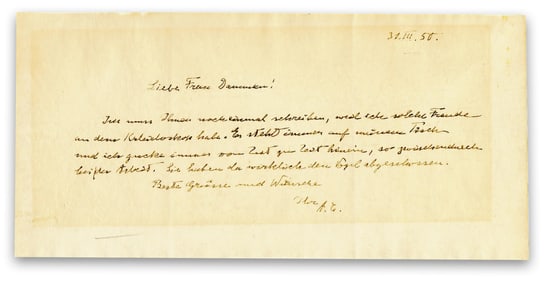 31.III.50.
Liebe Frau Dannmann!
Ich muss Ihnen noch einmal schreiben, weil ich solche Freude
an dem Kaleidoskop habe. Es steht immer auf meinem Tisch
und ich gucke immer von Zeit zu Zeit hinein, so zwischendurch
bei der Arbeit. Sie haben da wirklich den Vogel abgeschossen.
Beste Grüsse und Wünsche
Ihr A. E.